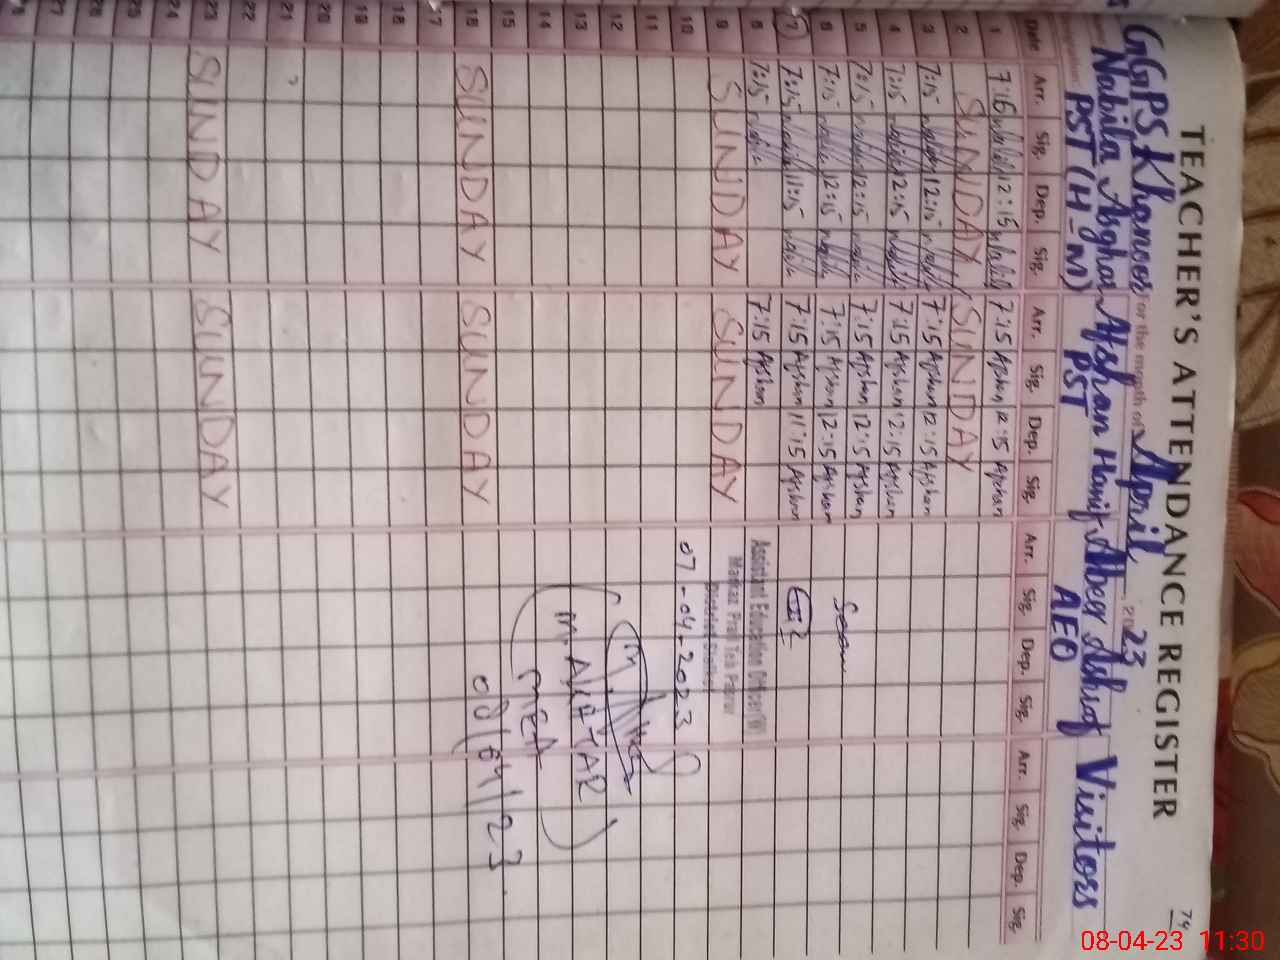 74
TEACHER'S ATTENDANCE REGISTER
GGPS Khanoor for the month of April 2023
Nabila Asghar Afshan Hanif Abeer Ashraf Visitors
PST (H-M) PST AEO
Date Arr. Sig. Dep. Sig. Arr. Sig. Dep. Sig. Arr. Sig. Dep. Sig. Arr. Sig. Dep. Sig.
1 7:16 Nabila 12:15 Nabila 7:15 Afshan 12:15 Afshan
2 SUNDAY SUNDAY
3 7:15 Nabila 12:15 Nabila 7:15 Afshan 12:15 Afshan
4 7:15 Nabila 12:15 Nabila 7:15 Afshan 12:15 Afshan
5 7:15 Nabila 12:15 Nabila 7:15 Afshan 12:15 Afshan
6 7:15 Nabila 12:15 Nabila 7:15 Afshan 12:15 Afshan
7 7:15 Nabila 11:15 Nabila 7:15 Afshan 11:15 Afshan
8 7:15 Nabila 7:15 Afshan
Assistant Education Officer (W)
9 SUNDAY SUNDAY
Markaz
District
10 07-04-2023
11
12
13 M. AKHTAR
14 MEA
15
16 SUNDAY SUNDAY 08/04/23
17
18
18
20
21
22
23 SUNDAY SUNDAY
24
25
26
27
28
08-04-23 11:30